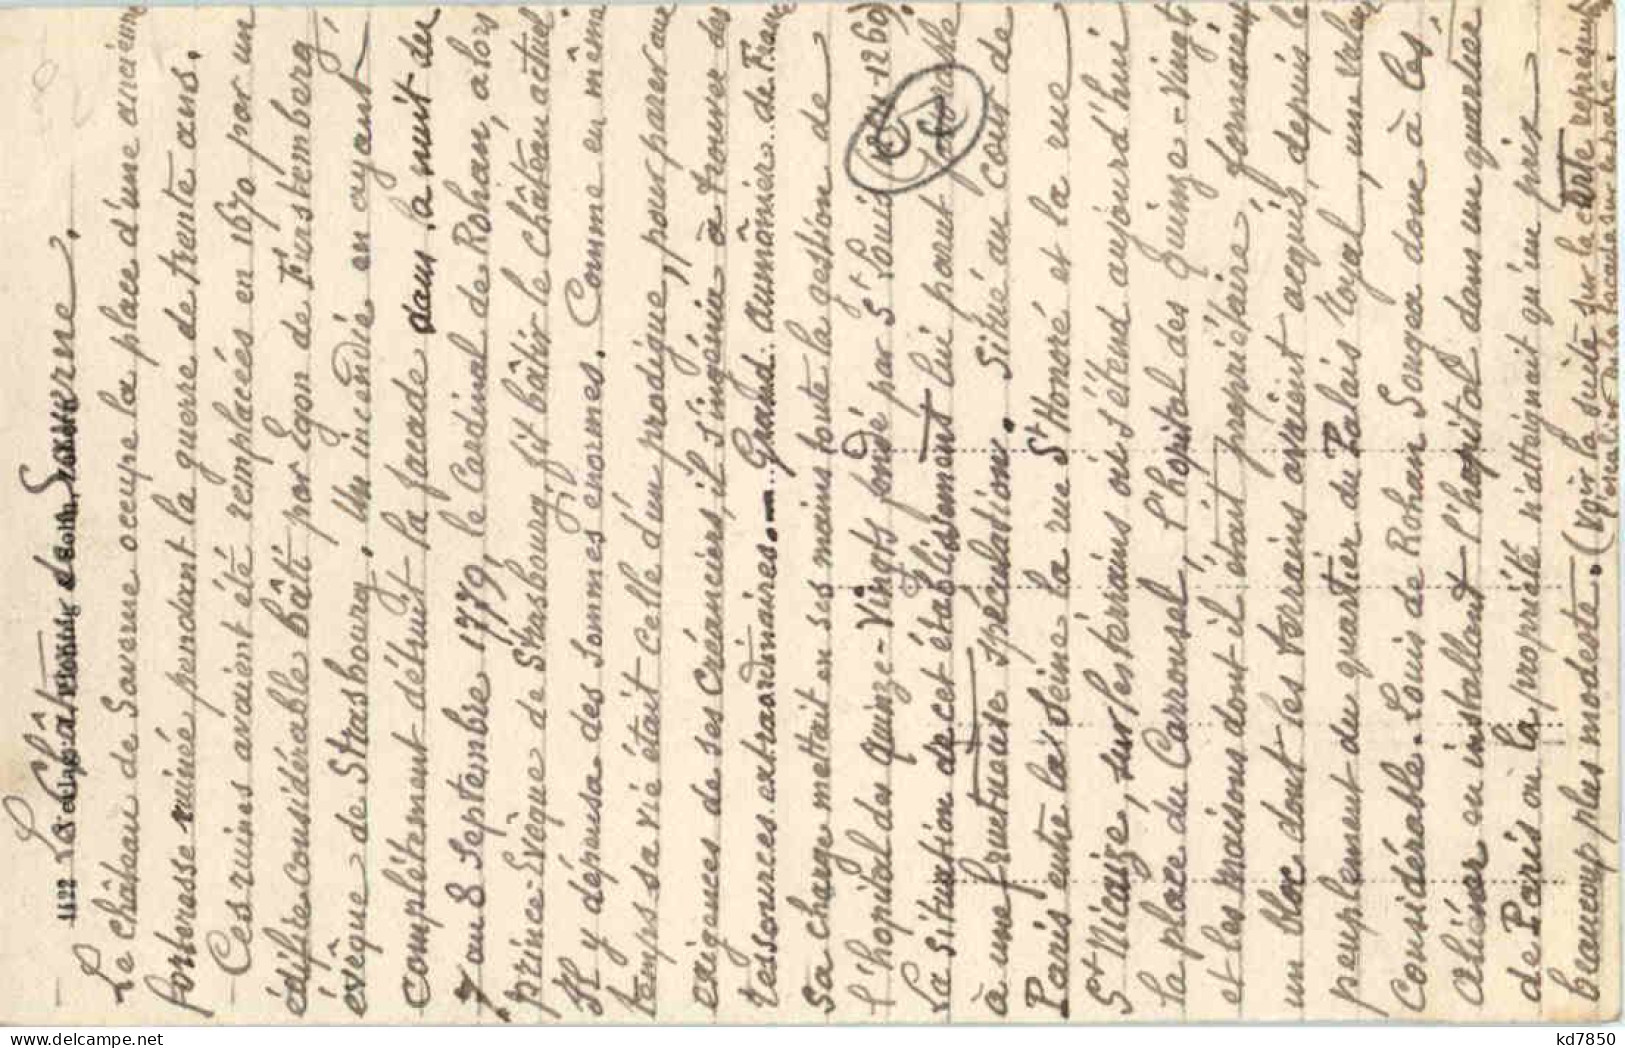 Le Château de Saverne.
1122
Le château de Saverne occupe la place d'une ancienne
forteresse ruinée pendant la guerre de trente ans.
Ces ruines avaient été remplacées en 1670 par un
édifice considérable bâti par Egon de Furstemberg,
évêque de Strasbourg. Un incendie en ayant
complètement détruit la façade dans la nuit du
7 au 8 Septembre 1779, le Cardinal de Rohan, alors
prince-Evêque de Strasbourg, fit bâtir le château actuel.
Il y dépensa des sommes enormes. Comme en même
temps sa vie était celle d'un prodigue, pour parer aux
exigences de ses créanciers, il s'ingénia à trouver des
ressources extraordinaires.— Grand aumônier de France
sa charge mettait en ses mains toute la gestion de
l'hopital des Quinze-Vingts fondé par St Louis 1260).
La situation de cet établissement lui parut
à une fructueuse spéculation. Situé au cœur de
Paris entre la Seine la rue St Honoré et la rue
St Nicaise, sur les terrains où s'étend aujourd'hui
la place du Carrousel, l'hopital des Quinze-Vingts
et les maisons dont il était propriétaire, formaient
un bloc dont les terrains avaient acquis, depuis le
peuplement du quartier du Palais Royal, une valeur
considérable. Louis de Rohan songea donc à les
aliéner en installant l'hopital dans un quartier
de Paris où la propriété n'atteignait qu'un prix
beaucoup plus modeste. (Voir la suite sur la carte représent
la façade sur le parc.